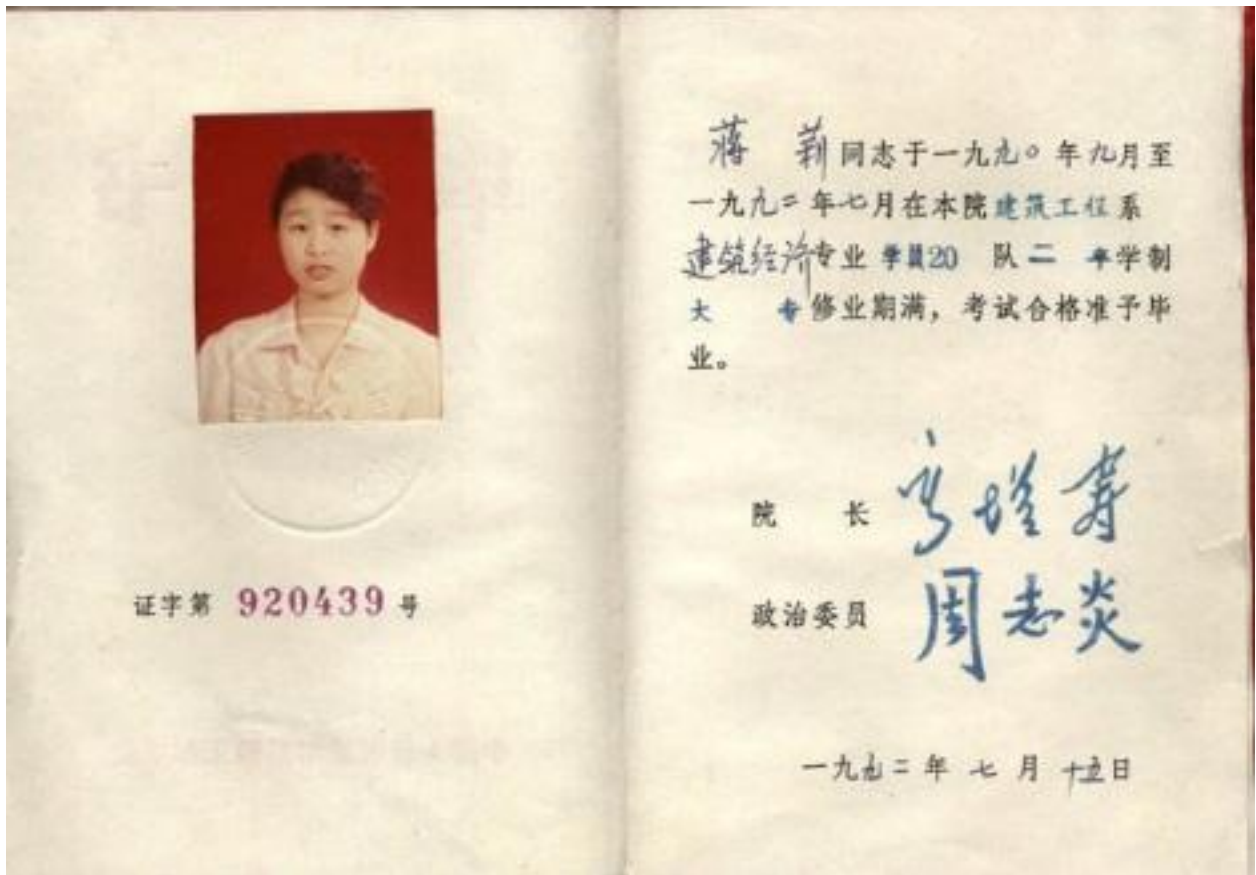 证字第 920439 号
蒋 莉同志于一九九〇年九月至
一九九二年七月在本院建筑工程系
建筑经济专业 学员20 队二 年学制
大 专修业期满，考试合格准予毕
业。
院 长
政治委员 周志炎
一九九二年 七 月 十五日